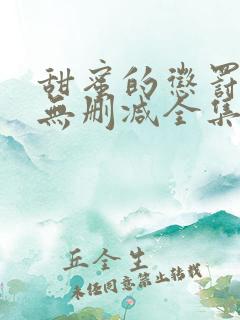 甜蜜的懲罰
無刪减全集
丘全生
未经同意禁止转载